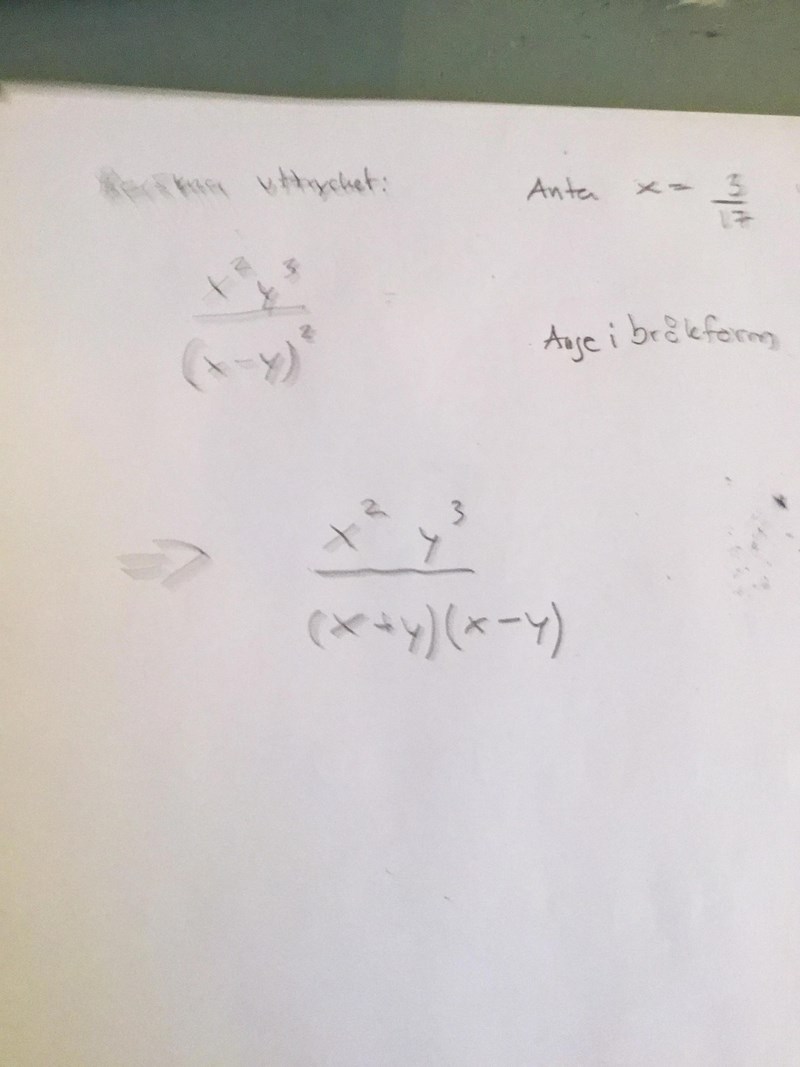 uttrycket:
Anta x = 3/17
x² y³
(x-y)²
Ange i bråkform
⇒
x² y³
(x+y)(x-y)